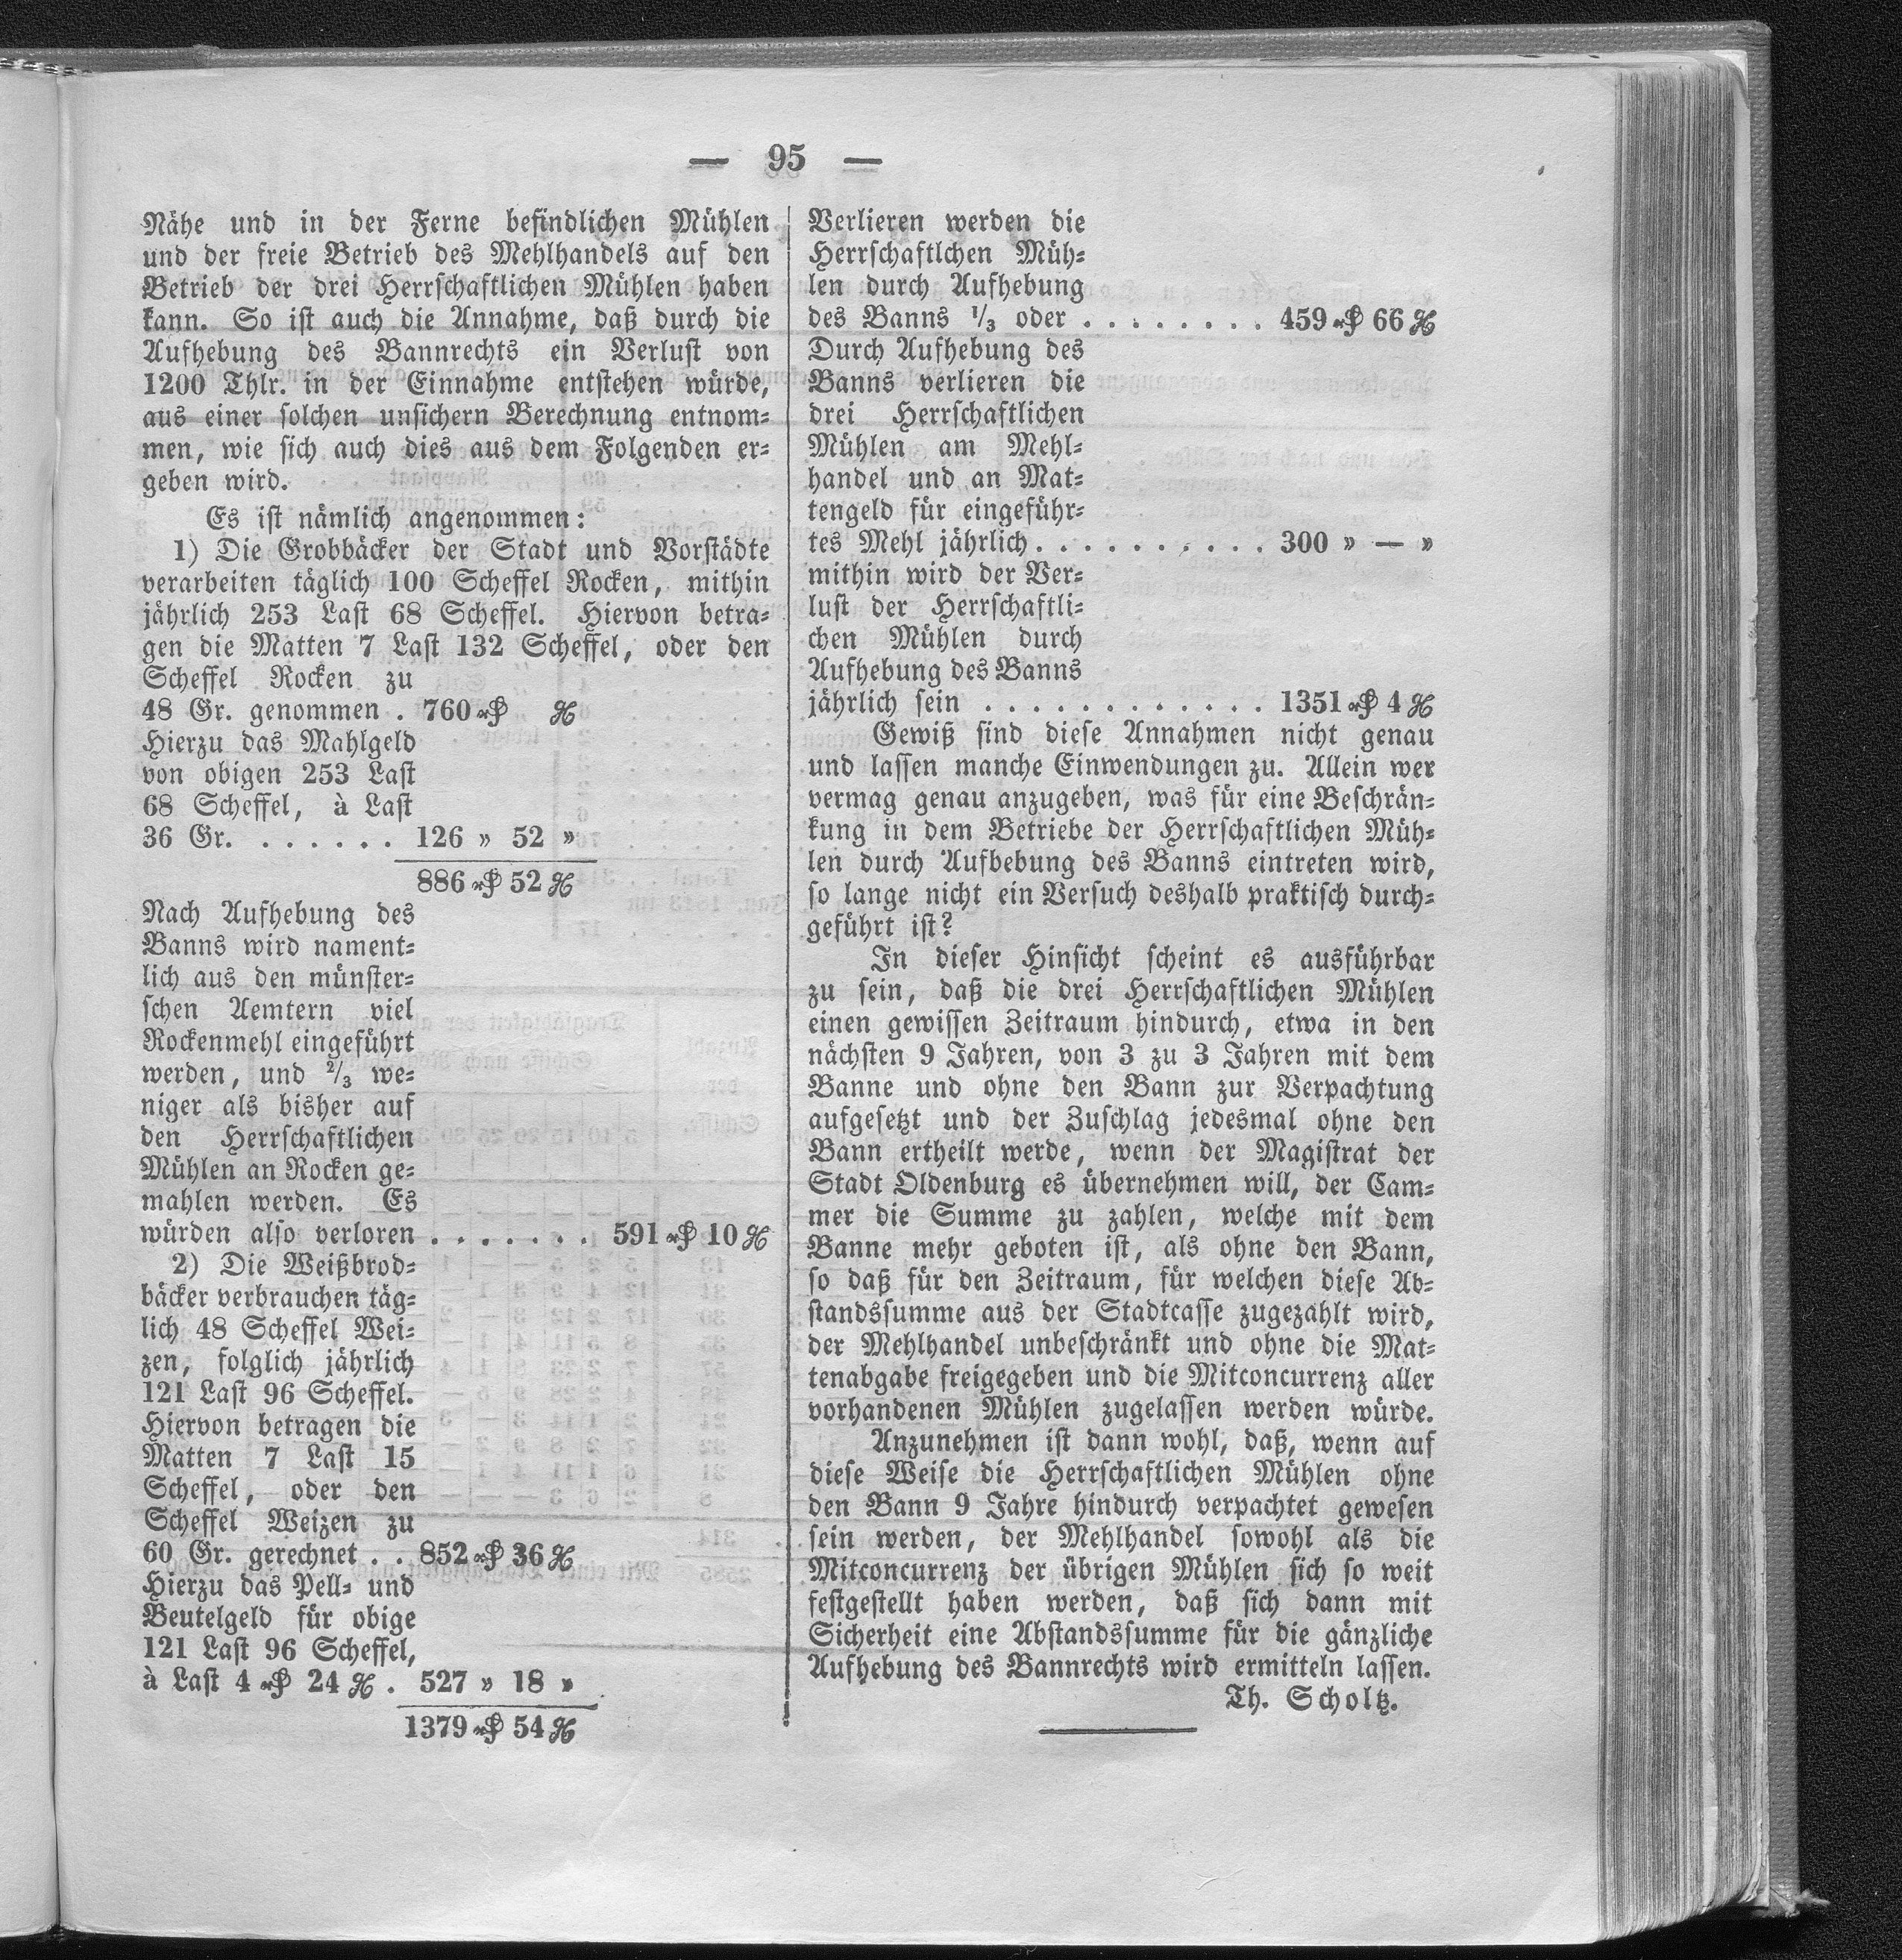 — 95 —
Nähe und in der Ferne befindlichen Mühlen
und der freie Betrieb des Mehlhandels auf den
Betrieb der drei Herrschaftlichen Mühlen haben
kann. So ist auch die Annahme, daß durch die
Aufhebung des Bannrechts ein Verlust von
1200 Thlr. in der Einnahme entstehen würde,
aus einer solchen unsichern Berechnung entnom-
men, wie sich auch dies aus dem Folgenden er-
geben wird.
Es ist nämlich angenommen:
1) Die Grobbäcker der Stadt und Vorstädte
verarbeiten täglich 100 Scheffel Rocken, mithin
jährlich 253 Last 68 Scheffel. Hiervon betra-
gen die Matten 7 Last 132 Scheffel, oder den
Scheffel Rocken zu
48 Gr. genommen . 760 ₰ ₰
Hierzu das Mahlgeld
von obigen 253 Last
68 Scheffel, à Last
36 Gr. . . . . . . 126 » 52 »
886 ₰ 52 ₰
Nach Aufhebung des
Banns wird nament-
lich aus den münster-
schen Aemtern viel
Rockenmehl eingeführt
werden, und 2/3 we-
niger als bisher auf
den Herrschaftlichen
Mühlen an Rocken ge-
mahlen werden. Es
würden also verloren . . . . . . . 591 ₰ 10 ₰
2) Die Weißbrod-
bäcker verbrauchen täg-
lich 48 Scheffel Wei-
zen, folglich jährlich
121 Last 96 Scheffel.
Hiervon betragen die
Matten 7 Last 15
Scheffel, oder den
Scheffel Weizen zu
60 Gr. gerechnet . . 852 ₰ 36 ₰
Hierzu das Pell- und
Beutelgeld für obige
121 Last 96 Scheffel,
à Last 4 ₰ 24 ₰ . 527 » 18 »
1379 ₰ 54 ₰
Verlieren werden die
Herrschaftlchen Müh-
len durch Aufhebung
des Banns 1/3 oder . . . . . . . . 459 ₰ 66 ₰
Durch Aufhebung des
Banns verlieren die
drei Herrschaftlichen
Mühlen am Mehl-
handel und an Mat-
tengeld für eingeführ-
tes Mehl jährlich . . . . . . . . . . 300 » — »
mithin wird der Ver-
lust der Herrschaftli-
chen Mühlen durch
Aufhebung des Banns
jährlich sein . . . . . . . . . . . . 1351 ₰ 4 ₰
Gewiß sind diese Annahmen nicht genau
und lassen manche Einwendungen zu. Allein wer
vermag genau anzugeben, was für eine Beschrän-
kung in dem Betriebe der Herrschaftlichen Müh-
len durch Aufbebung des Banns eintreten wird,
so lange nicht ein Versuch deshalb praktisch durch-
geführt ist?
In dieser Hinsicht scheint es ausführbar
zu sein, daß die drei Herrschaftlichen Mühlen
einen gewissen Zeitraum hindurch, etwa in den
nächsten 9 Jahren, von 3 zu 3 Jahren mit dem
Banne und ohne den Bann zur Verpachtung
aufgesetzt und der Zuschlag jedesmal ohne den
Bann ertheilt werde, wenn der Magistrat der
Stadt Oldenburg es übernehmen will, der Cam-
mer die Summe zu zahlen, welche mit dem
Banne mehr geboten ist, als ohne den Bann,
so daß für den Zeitraum, für welchen diese Ab-
standssumme aus der Stadtcasse zugezahlt wird,
der Mehlhandel unbeschränkt und ohne die Mat-
tenabgabe freigegeben und die Mitconcurrenz aller
vorhandenen Mühlen zugelassen werden würde.
Anzunehmen ist dann wohl, daß, wenn auf
diese Weise die Herrschaftlichen Mühlen ohne
den Bann 9 Jahre hindurch verpachtet gewesen
sein werden, der Mehlhandel sowohl als die
Mitconcurrenz der übrigen Mühlen sich so weit
festgestellt haben werden, daß sich dann mit
Sicherheit eine Abstandssumme für die gänzliche
Aufhebung des Bannrechts wird ermitteln lassen.
Th. Scholtz.